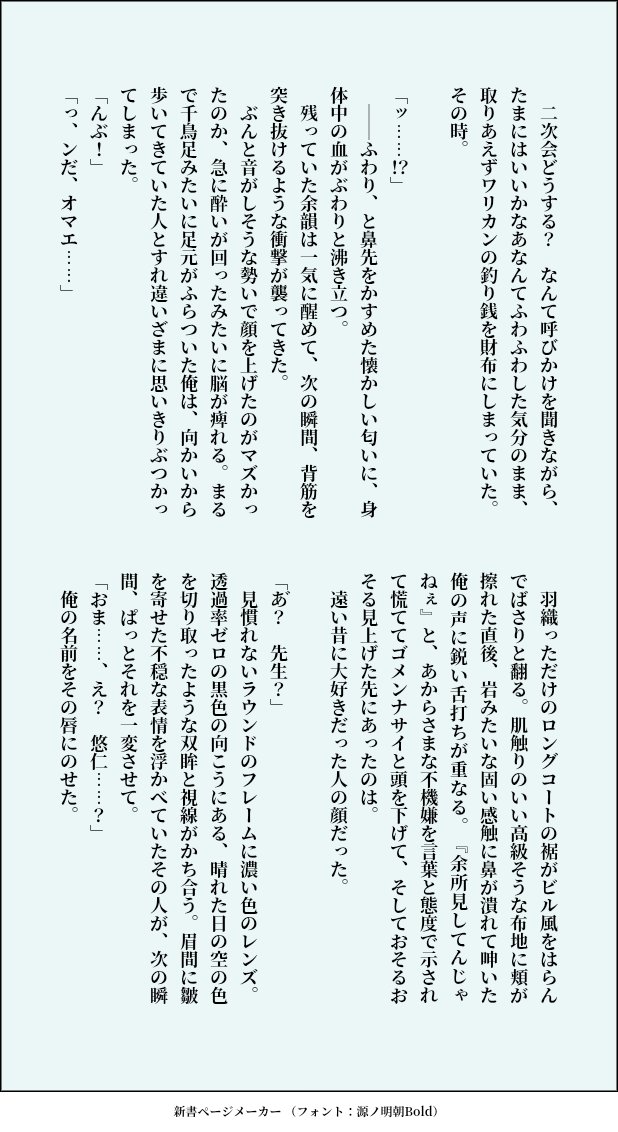 二次会どうする？　なんて呼びかけを聞きながら、
たまにはいいかなあなんてふわふわした気分のまま、
取りあえずワリカンの釣り銭を財布にしまっていた。
その時。
「ッ……!?」
　――ふわり、と鼻先をかすめた懐かしい匂いに、身
体中の血がぶわりと沸き立つ。
　残っていた余韻は一気に醒めて、次の瞬間、背筋を
突き抜けるような衝撃が襲ってきた。
　ぶんと音がしそうな勢いで顔を上げたのがマズかっ
たのか、急に酔いが回ったみたいに脳が痺れる。まる
で千鳥足みたいに足元がふらついた俺は、向かいから
歩いてきていた人とすれ違いざまに思いきりぶつかっ
てしまった。
「んぶ！」
「っ、ンだ、オマエ……」
　羽織っただけのロングコートの裾がビル風をはらん
でばさりと翻る。肌触りのいい高級そうな布地に頬が
擦れた直後、岩みたいな固い感触に鼻が潰れて呻いた
俺の声に鋭い舌打ちが重なる。『余所見してんじゃ
ねぇ』と、あからさまな不機嫌を言葉と態度で示され
て慌ててゴメンナサイと頭を下げて、そしておそるお
そる見上げた先にあったのは。
　遠い昔に大好きだった人の顔だった。
「あ゛？　先生？」
　見慣れないラウンドのフレームに濃い色のレンズ。
透過率ゼロの黒色の向こうにある、晴れた日の空の色
を切り取ったような双眸と視線がかち合う。眉間に皺
を寄せた不穏な表情を浮かべていたその人が、次の瞬
間、ぱっとそれを一変させて。
「おま……、え？　悠仁……？」
　俺の名前をその唇にのせた。
新書ページメーカー （フォント：源ノ明朝Bold）